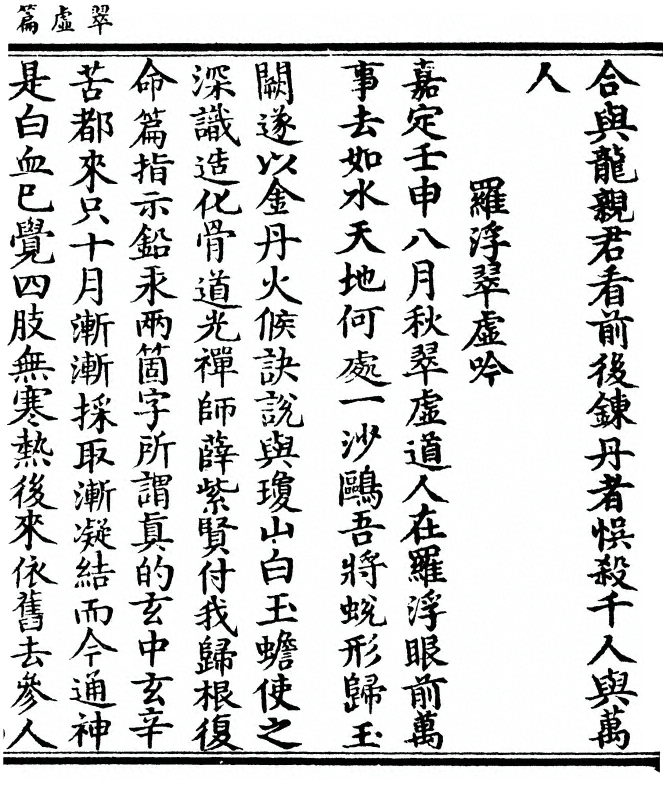 翠虛篇
合與龍親君看前後鍊丹者悞殺千人與萬
人
羅浮翠虛吟
嘉定壬申八月秋翠虛道人在羅浮眼前萬
事去如水天地何處一沙鷗吾將蛻形歸玉
闕遂以金丹火候訣說與瓊山白玉蟾使之
深識造化骨道光禪師薛紫賢付我歸根復
命篇指示鉛汞兩箇字所謂眞的玄中玄辛
苦都來只十月漸漸採取漸凝結而今通神
是白血巳覺四肢無寒熱後來依舊去參人